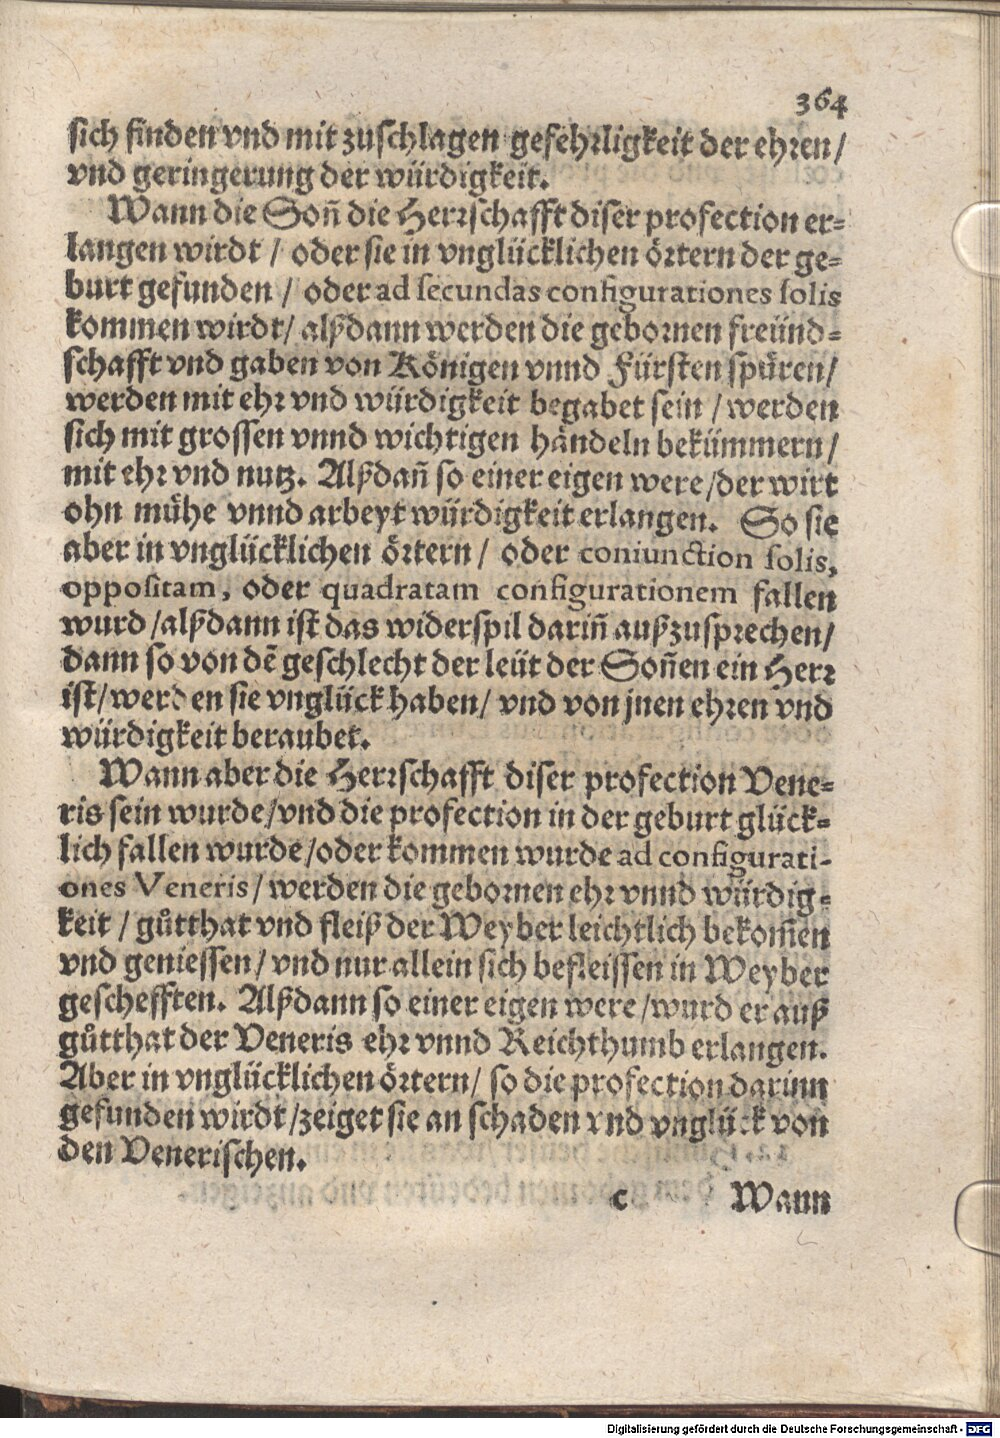 364
sich finden vnd mit zuschlagen gefehrligkeit der ehren/
vnd geringerung der würdigkeit.
Wann die Son̄ die Herrschafft diser profection er=
langen wirdt / oder sie in vnglücklichen örtern der ge=
burt gefunden / oder ad secundas configurationes solis
kommen wirdt/ alßdann werden die gebornen freünd=
schafft vnd gaben von Königen vnnd Fürsten spüren/
werden mit ehr vnd würdigkeit begabet sein / werden
sich mit grossen vnnd wichtigen händeln bekümmern/
mit ehr vnd nutz. Alßdan̄ so einer eigen were/der wirt
ohn mühe vnnd arbeyt würdigkeit erlangen. So sie
aber in vnglücklichen örtern / oder coniunction solis,
oppositam, oder quadratam configurationem fallen
wurd /alßdann ist das widerspil darin̄ außzusprechen/
dann so von dē geschlecht der leüt der Son̄en ein Herr
ist/ werden sie vnglück haben/ vnd von jnen ehren vnd
würdigkeit beraubet.
Wann aber die Herrschafft diser profection Vene=
ris sein wurde/vnd die profection in der geburt glück=
lich fallen wurde/oder kommen wurde ad configurati-
ones Veneris/ werden die gebornen ehr vnnd würdig=
keit / gůtthat vnd fleiß der Weyber leichtlich bekom̄en
vnd geniessen/ vnd nur allein sich befleissen in Weyber
geschefften. Alßdann so einer eigen were/wurd er auß
gůtthat der Veneris ehr vnnd Reichthumb erlangen.
Aber in vnglücklichen örtern/ so die profection darinn
gefunden wirdt/zeiget sie an schaden vnd vnglück von
den Venerischen.
c Wann
Digitalisierung gefördert durch die Deutsche Forschungsgemeinschaft - DFG